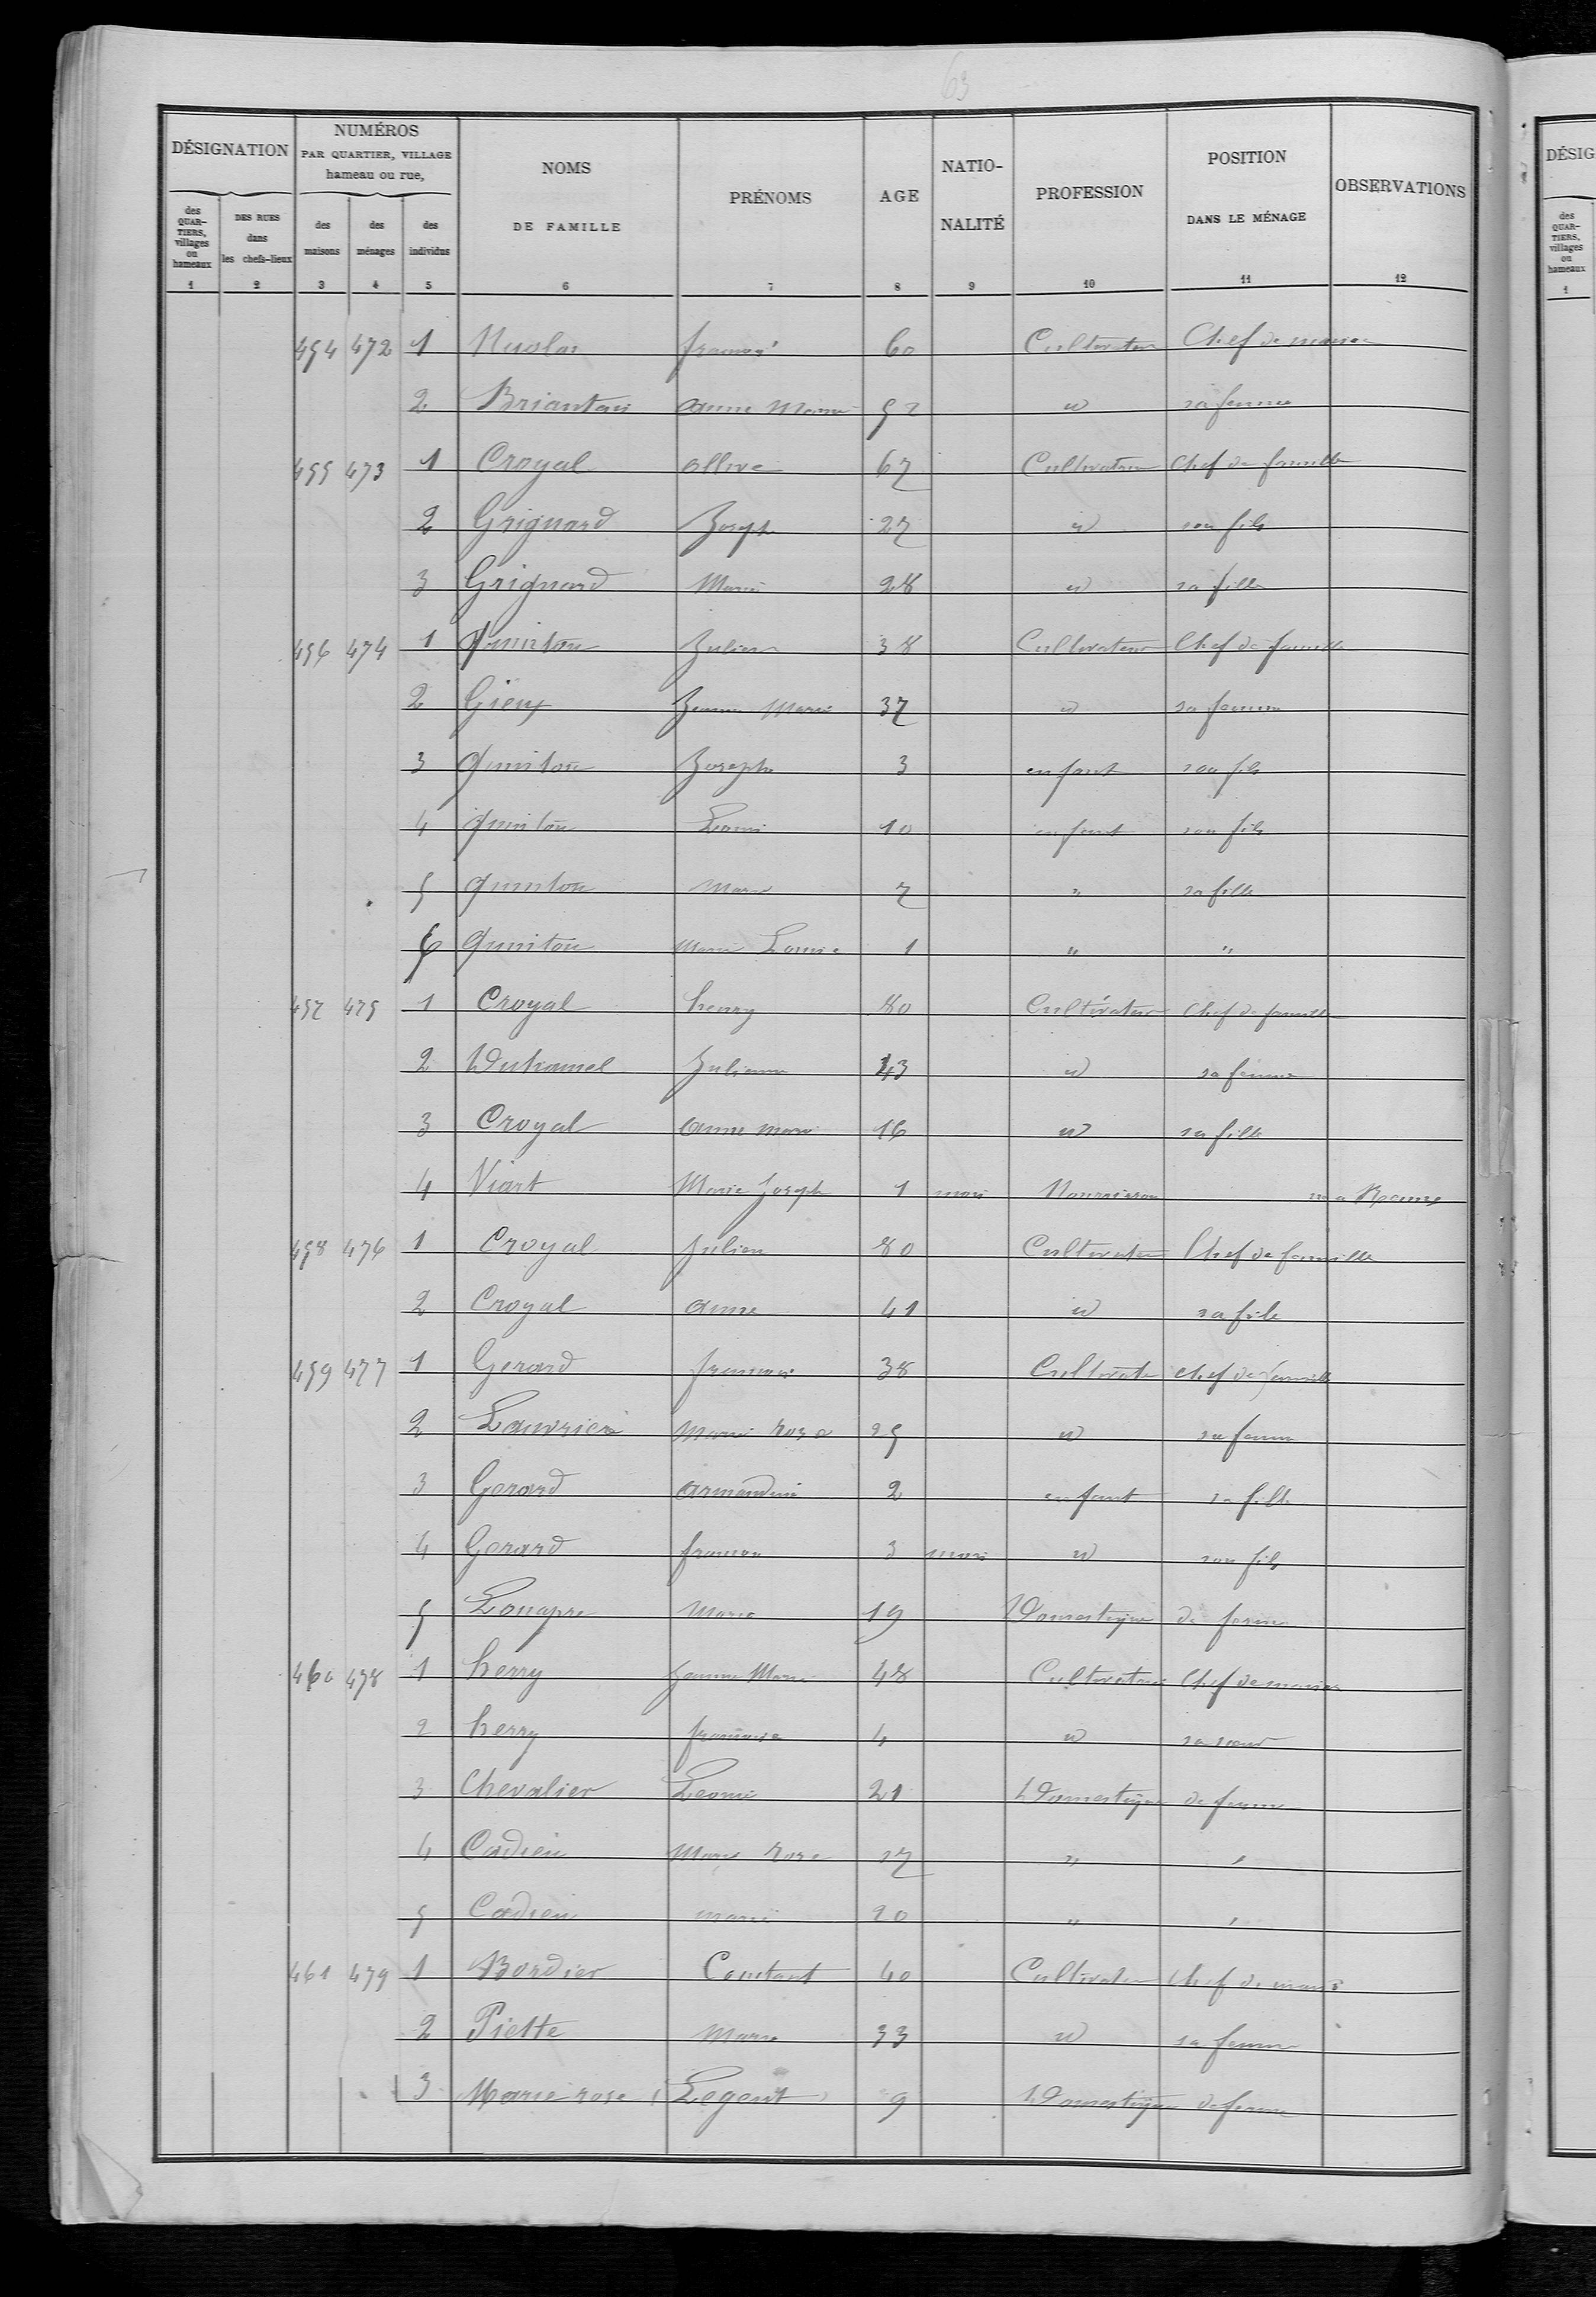 63
DÉSIGNATION NUMÉROS PAR QUARTIER, VILLAGE hameau ou rue, NOMS DE FAMILLE PRÉNOMS AGE NATIO-NALITÉ PROFESSION POSITION DANS LE MÉNAGE OBSERVATIONS
des QUAR-TIERS, villages ou hameaux DES RUES dans les chefs-lieux des maisons des ménages des individus
1 2 3 4 5 6 7 8 9 10 11 12
454 472 1 60 Cultivateur Chef de
2 Briantais anne Marie 52 id sa femme
455 473 1 Croyal ollive 67 Cultivatrice Chef de famille
2 Grignard Joseph 27 id son fils
3 Grignard Marie 28 id sa fille
456 474 1 Quinton Julien 38 Cultivateur Chef de famille
2 Gieux Jeanne Marie 37 id sa femme
3 Quinton Joseph 3 enfant son fils
4 Quinton Louis 10 enfant son fils
5 Quinton Marie 7 " sa fille
6 Quinton Marie Louise 1 " "
457 475 1 Croyal henry 80 Cultivateur Chef de famille
2 Duhamel Julienne 43 id sa femme
3 Croyal Anne marie 16 id sa fille
4 Viart Marie Joseph 1 mois Nourrisson Rennes
458 476 1 Croyal Julien 80 Cultivateur Chef de famille
2 Croyal anne 41 id sa file
459 477 1 Gerard francois 38 Cultivate chef de famille
2 Marie rose 25 id sa femme
3 Gerard armandine 2 enfant sa fille
4 Gerard 3 mois id son fils
5 Louapre Marie 19 Domestique de ferme
460 478 1 herry Jeanne Marie 48 Cultivatrice Chef de
2 herry francoise 4 id sa soeur
3 Chevalier Leonie 21 Domestique de ferme
4 Cadieu Marie rose 17 " "
5 Cadieu marie 20 " "
461 479 1 Bordier Constant 40 Cultivateur Chef de
2 Piette Marie 33 id sa femme
3 Marie rose Legerit 9 Domestique de ferme
DÉSIG
des QUAR-TIERS, villages ou hameaux
1